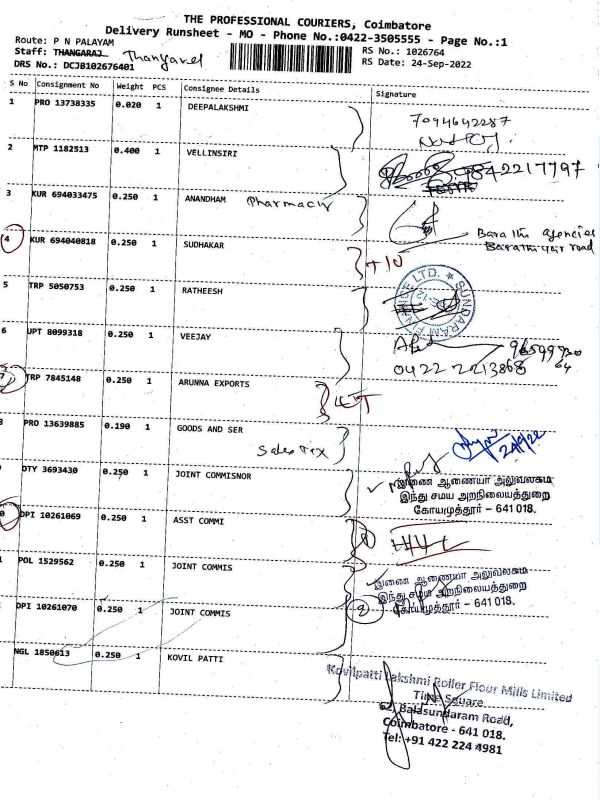 THE PROFESSIONAL COURIERS, Coimbatore
Delivery Runsheet - MO - Phone No.:0422-3505555 - Page No.:1
Route: P N PALAYAM
Staff: THANGARAJ Thangavel
RS No.: 1026764
DRS No.: DCJB102676401
RS Date: 24-Sep-2022
S No Consignment No Weight PCS Consignee Details Signature
1 PRO 13738335 0.020 1 DEEPALAKSHMI
7094642287
2 MTP 1182513 0.400 1 VELLINSIRI
9842217797
3 KUR 694033475 0.250 1 ANANDHAM Pharmacy
Barathi agencies
Barathiyar road
4 KUR 694040818 0.250 1 SUDHAKAR
5 TRP 5050753 0.250 1 RATHEESH
SUNDARAM FINANCE LTD.
6 UPT 8099318 0.250 1 VEEJAY
0422 2213868
7 TRP 7845148 0.250 1 ARUNNA EXPORTS
PRO 13639885 0.190 1 GOODS AND SER
Sales Tax
24/9/22
DTY 3693430 0.250 1 JOINT COMMISNOR
இணை ஆணையர் அலுவலகம்
இந்து சமய அறநிலையத்துறை
கோயமுத்தூர் – 641 018.
DPI 10261069 0.250 1 ASST COMMI
POL 1529562 0.250 1 JOINT COMMIS
இணை ஆணையர் அலுவலகம்
இந்து சமய அறநிலையத்துறை
கோயமுத்தூர் – 641 018.
DPI 10261070 0.250 1 JOINT COMMIS
2
NGL 1850613 0.250 1 KOVIL PATTI
Kovilpatti Lakshmi Roller Flour Mills Limited
Time Square
62, Balasundaram Road,
Coimbatore - 641 018.
Tel: +91 422 224 4981